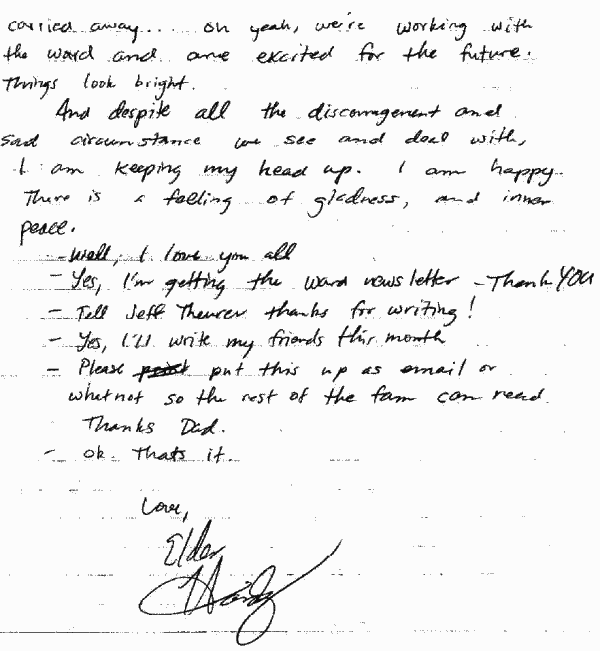 carried away... oh yeah, we're working with
the ward and are excited for the future.
Things look bright.
And despite all the discouragement and
sad circumstance we see and deal with,
I am keeping my head up. I am happy.
There is a feeling of gladness, and inner
peace.
- Well, I love you all
- Yes, I'm getting the ward newsletter - Thank YOU
- Tell Jeff Theurer thanks for writing!
- Yes, I'll write my friends this month
- Please put this up as email or
whatnot so the rest of the fam can read.
Thanks Dad.
- ok. Thats it.
Love,
Elder